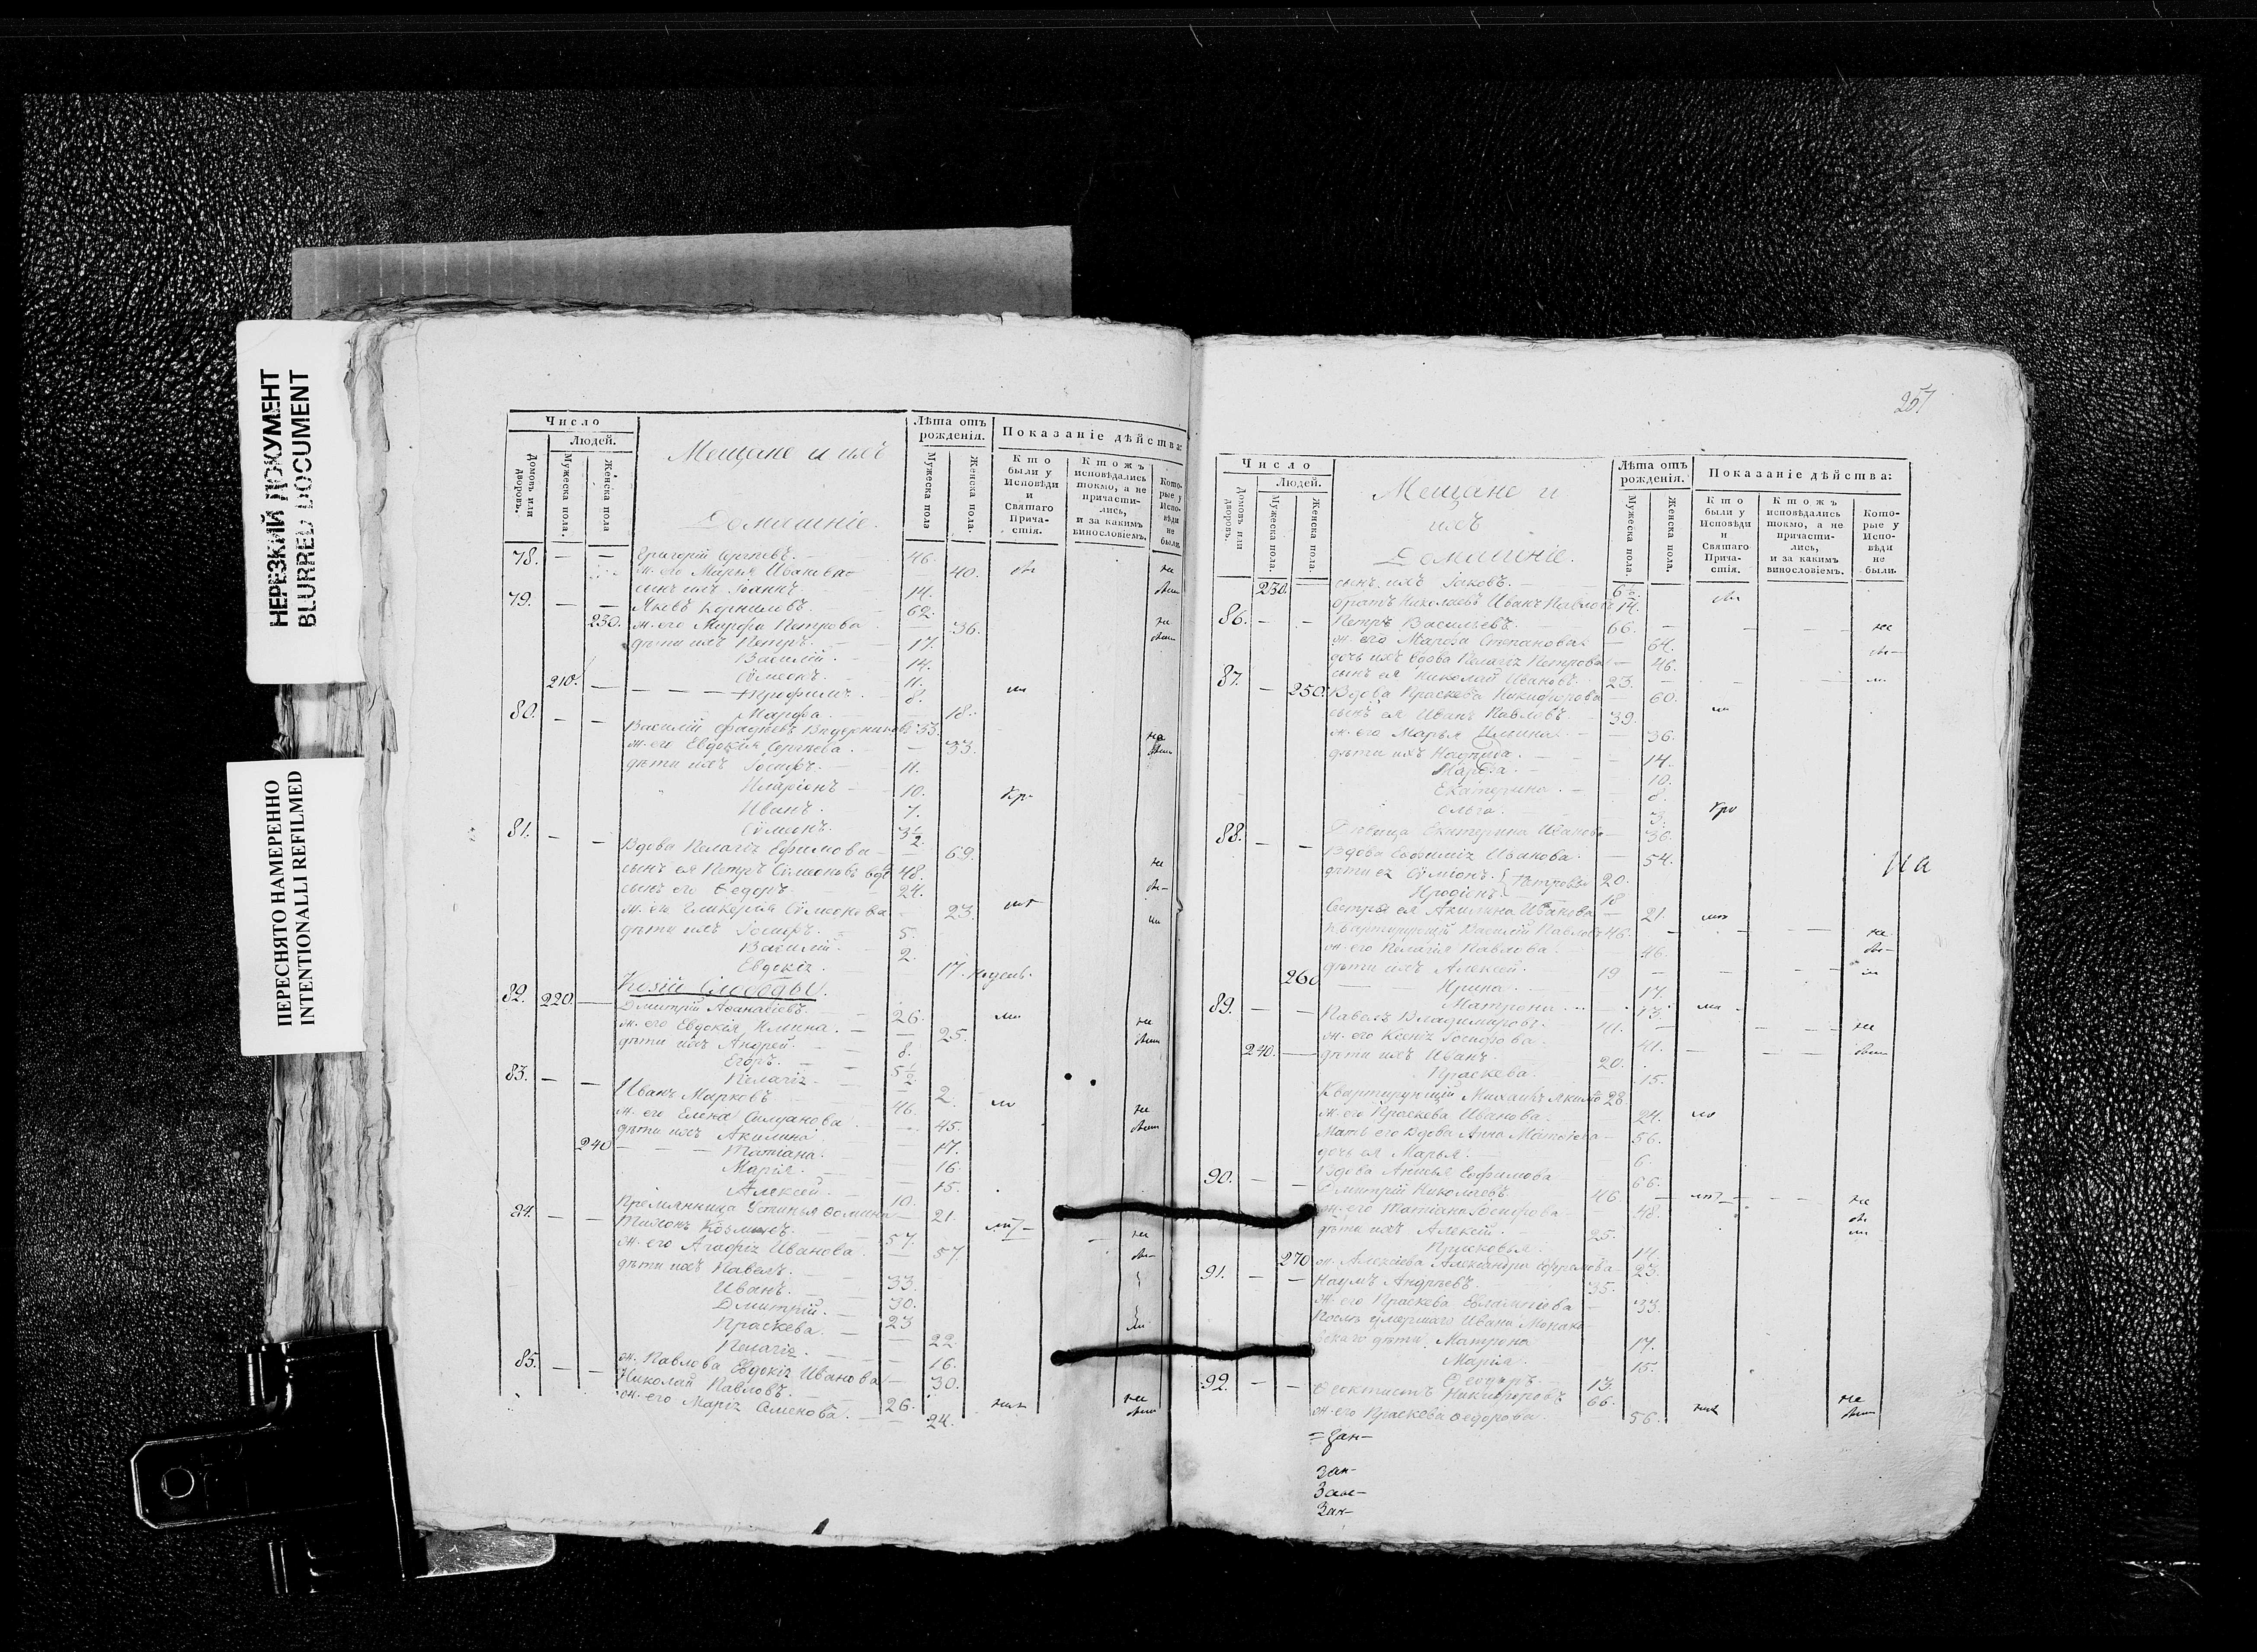 НЕРЕЗКИЙ ДОКУМЕНТ
BLURRED DOCUMENT
ПЕРЕСНЯТО НАМЕРЕННО
INTENTIONALLI REFILMED
Число
Людей.
Домовъ или дворовъ.
Мужеска пола.
Женска пола
Мещане и ихъ
Домашніе.
Лѣта отъ рожденія.
Мужеска пола
Женска пола.
Показаніе дѣйства:
Кто были у Исповѣди и Святаго Причастія.
Ктожъ исповѣдались токмо, а не причастились, и за какимъ винословіемъ.
Которые у Исповѣди не были.
78. — — Григорій Сергѣевъ. 46.
ж. его Марья Иванова 40.
сынъ ихъ Іоаннъ 14.
79. — — Яковъ Корниловъ. 62.
230. ж. его Марфа Петрова 36.
дѣти ихъ Петръ. 17.
Василій. 14.
Сѷмеонъ. 11.
210. — Трофимъ. 8.
Марфа. 18.
80. — — Василій Фадѣевъ 53.
ж. его Евдокія Сергѣева. 33.
дѣти ихъ Іосифъ. 11.
Иларіонъ 10.
Иванъ. 7.
Сѷмеонъ. 3 1/2
81. — — Вдова Пелагіа Ефимова 69.
сынъ ея Петръ Сѷмеоновъ вдов 48.
сынъ его Ѳедоръ. 24.
ж. его Гликерія Сѷмеонова 23.
дѣти ихъ Іосифъ. 5.
Василій. 2.
Евдокіа. 17. недель.
Козіи Слободы.
82. 220. — Дмитрій Аѳанасіевъ. 26.
ж. его Евдокія Ильина. 25.
дѣти ихъ Андрей. 8.
Егоръ. 5 1/2.
Пелагіа. 2.
83. — — Иванъ Марковъ 46.
ж. его Елена 45.
дѣти ихъ Акилина. 17.
240 — Татіана. 16.
Марія. 15.
Алексѣй. 10.
Племянница Устинья 21.
84. — — 57.
ж. его Агафіа Иванова. 57.
дѣти ихъ Павелъ. 33.
Иванъ. 30.
Дмитрій. 23
Праскева. 22
Пелагіа. 16.
ж. Павлова Евдокіа Иванова 30.
85. — — Николай Павловъ. 26.
ж. его Маріа Семенова. 24.
257
Число
Людей.
Домовъ или дворовъ.
Мужеска пола.
Женска пола.
Мещане и
ихъ
Домашніе.
Лѣта отъ рожденія.
Мужеска пола.
Женска пола.
Показаніе дѣйства:
Кто были у Исповѣди и Святаго Причастія.
Ктожъ исповѣдались токмо, а не причастились, и за какимъ винословіемъ.
Которые у Исповѣди не были.
230. — сынъ ихъ Іаковъ. 6 1/2.
братъ Николаевъ Иванъ Павловъ 14.
86. — — Петръ Васильевъ. 66.
ж. его Марѳа Степанова 64.
дочь ихъ вдова Пелагіа Петрова 46.
сынъ ея Николай Ивановъ. 23.
87. — 250. Вдова Праскева Никифорова 60.
сынъ ея Иванъ Павловъ. 39.
ж. его Марья Ильина 36.
дѣти ихъ 14.
Марѳа. 10.
Екатерина. 8.
Ольга. 3.
Дѣвица Екатерина Иванова 36.
88. — — Вдова Евфиміа Иванова. 54.
дѣти ея Сѷміонъ. Петровы 20.
Иродіонъ. 18
Сестра ея Акилина Иванова 21.
Квартирующій Василій Павловъ 46.
ж. его Пелагія Павлова 46.
дѣти ихъ Алексѣй. 19
260 Ирина. 17.
Матрона. 13.
89. — — Павелъ Владимировъ. 41.
ж. его Ксеніа Іосифова. 41.
240. — дѣти ихъ Иванъ. 20.
Праскева. 15.
Квартирующій Михаилъ 28
ж. его Праскева Иванова. 24.
Мать его Вдова Анна Матѳіева 56.
дочь ея Марья. 6.
Вдова Анисья Евфимова 66.
90. — — Дмитрій Николаевъ 46.
ж. его Татіана Іосифова 48.
дѣти ихъ Алексѣй. 25.
Прасковья. 14.
270 ж. Алексѣева Александра Ефремова 23.
91. — — Наумъ Андрѣевъ 35.
ж. его Праскева 33.
Послѣ умершаго Ивана
дѣти. Матрона 17.
Марія. 15.
Ѳеодоръ. 13.
92. — — Ѳеоктистъ Никифоровъ 66.
ж. его Праскева Ѳедорова. 56.